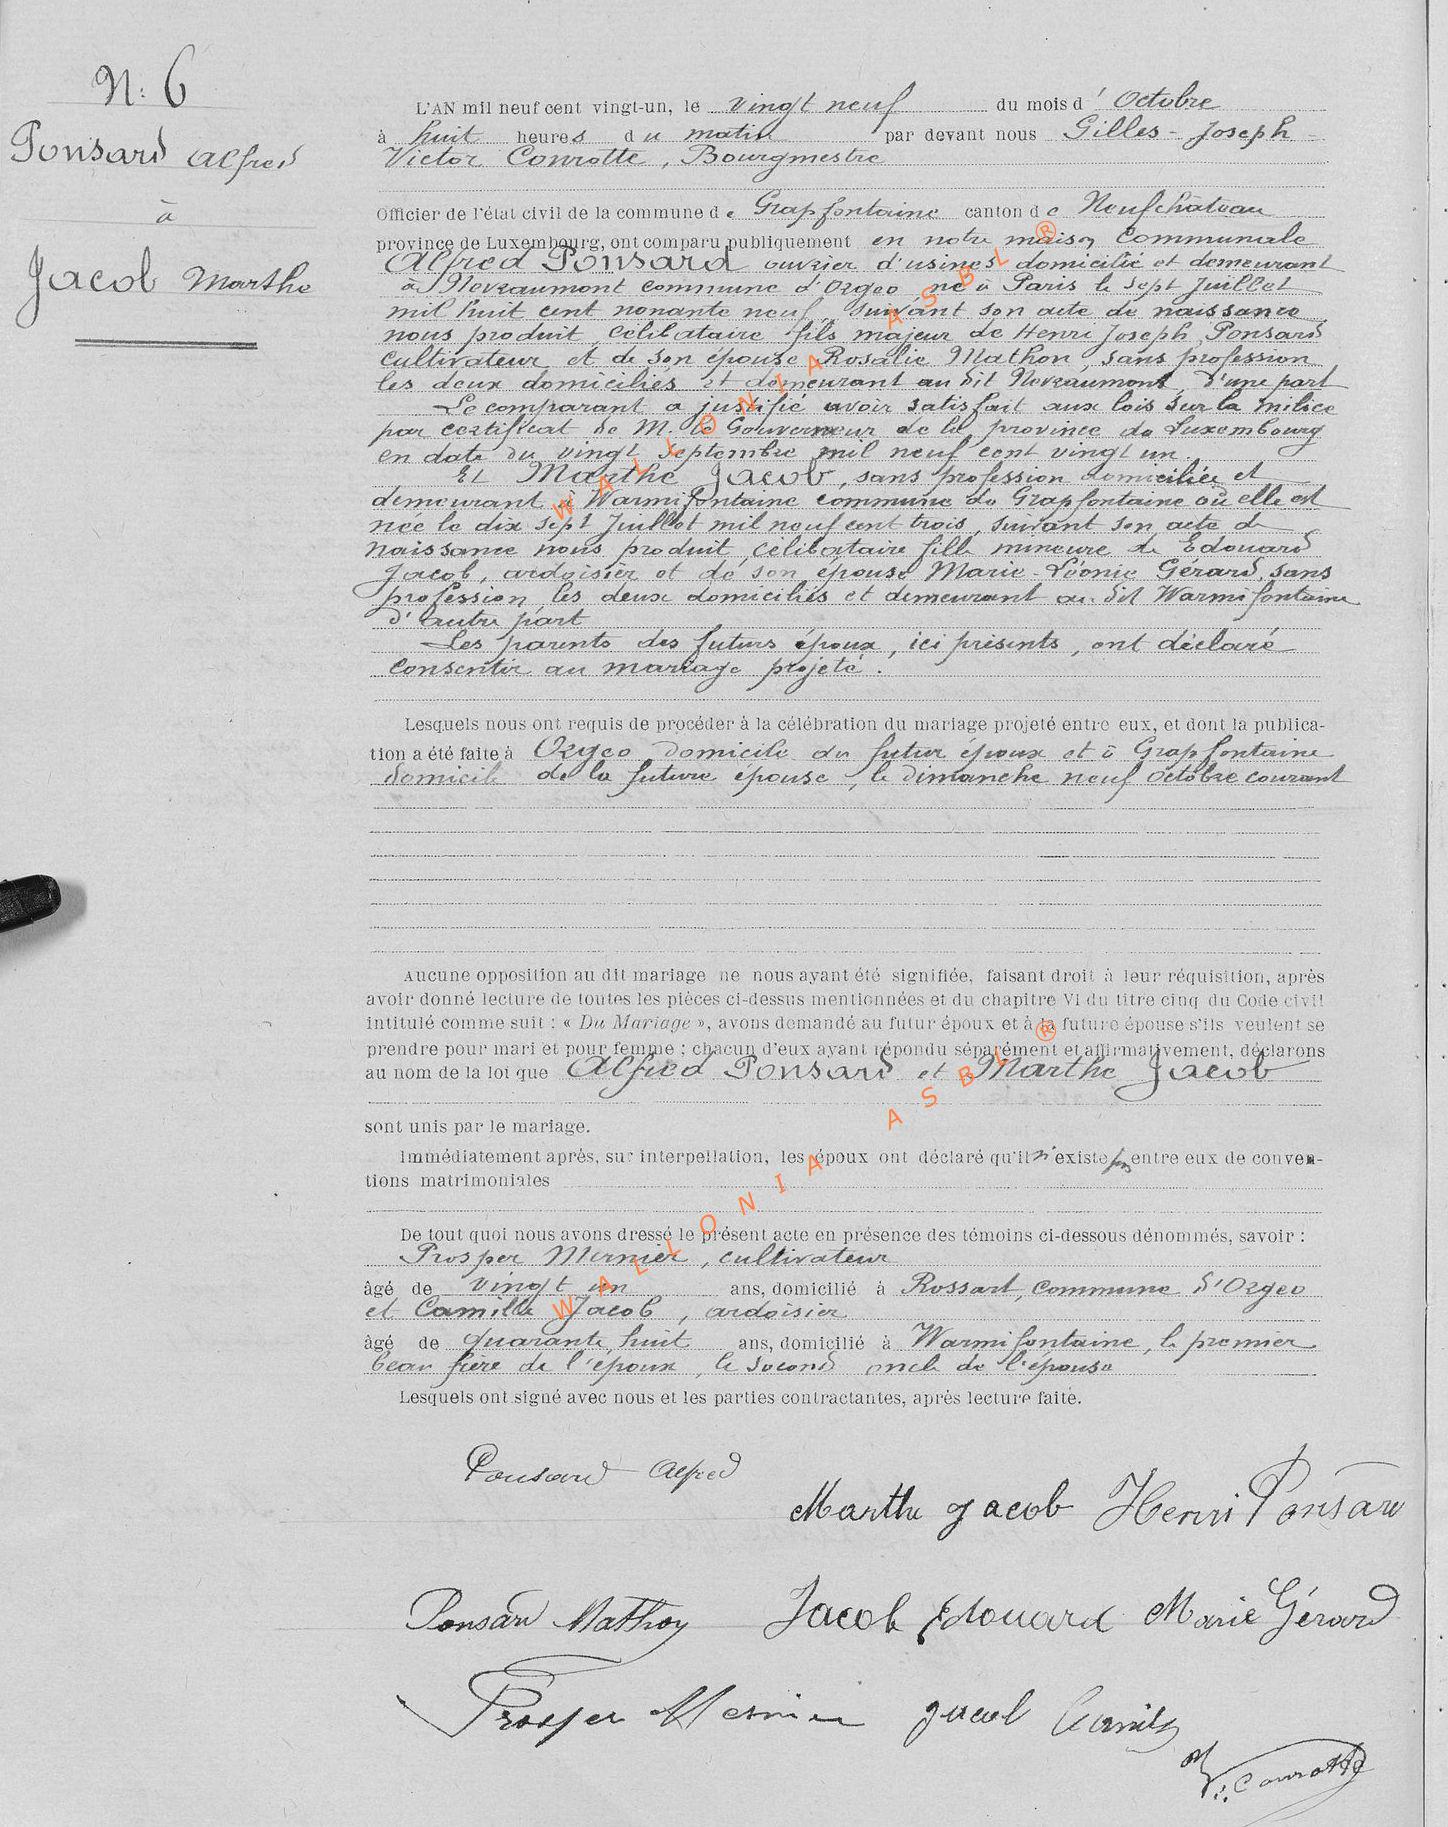 N: 6
Ponsard Alfred
à
Jacob Marthe
L'AN mil neuf cent vingt-un, le vingt neuf du mois d' Octobre
à huit heures du matin par devant nous Gilles - Joseph -
Victor Conrotte, Bourgmestre
Officier de l'état civil de la commune de Grapfontaine canton de Neufchâteau
province de Luxembourg, ont comparu publiquement en notre maison Communale
Alfred Ponsard ouvrier d'usines domicilié et demeurant
à Nevraumont commune d'Orgeo, né à Paris le sept Juillet
mil huit cent nonante neuf, suivant son acte de naissance
nous produit, célibataire fils majeur de Henri Joseph Ponsard
cultivateur et de son épouse Rosalie Mathon, sans profession
les deux domiciliés et demeurant au dit Nevraumont, d'une part
Le comparant a justifié avoir satisfait aux lois sur la milice
par certificat de M. le Gouverneur de la province du Luxembourg
en date du vingt septembre mil neuf cent vingt un.
Et Marthe Jacob, sans profession domiciliée et
demeurant à Warmifontaine commune de Grapfontaine où elle est
née le dix sept Juillet mil neuf cent trois, suivant son acte de
naissance nous produit, célibataire fille mineure de Edouard
Jacob, ardoisier et de son épouse Marie-Léonie Gérard, sans
profession, les deux domiciliés et demeurant au dit Warmifontaine
d'autre part
Les parents des futurs époux, ici présents, ont déclaré
consentir au mariage projeté.
Lesquels nous ont requis de procéder à la célébration du mariage projeté entre eux, et dont la publica-
tion a été faite à Orgeo domicile du futur époux et à Grapfontaine
domicile de la future épouse, le dimanche neuf octobre courant
Aucune opposition au dit mariage ne nous ayant été signifiée, faisant droit à leur réquisition, après
avoir donné lecture de toutes les pièces ci-dessus mentionnées et du chapitre VI du titre cinq du Code civil
intitulé comme suit : « Du Mariage », avons demandé au futur époux et à la future épouse s'ils veulent se
prendre pour mari et pour femme ; chacun d'eux ayant répondu séparément et affirmativement, déclarons
au nom de la loi que Alfred Ponsard et Marthe Jacob
sont unis par le mariage.
Immédiatement après, sur interpellation, les époux ont déclaré qu'il n'existe pas entre eux de conven-
tions matrimoniales
De tout quoi nous avons dressé le présent acte en présence des témoins ci-dessous dénommés, savoir :
Prosper Mernier, cultivateur
âgé de vingt un ans, domicilié à Rossart, commune d'Orgeo
et Camille Jacob, ardoisier
âgé de quarante huit ans, domicilié à Warmifontaine, le premier
beau frère de l'époux, le second oncle de l'épouse
Lesquels ont signé avec nous et les parties contractantes, après lecture faite.
Ponsard Alfred
Marthe Jacob Henri Ponsard
Ponsard Mathon Jacob Edouard Marie Gérard
Prosper Mernier Jacob Camille
V. Conrotte
WALLONIA ASBL ®
WALLONIA ASBL ®